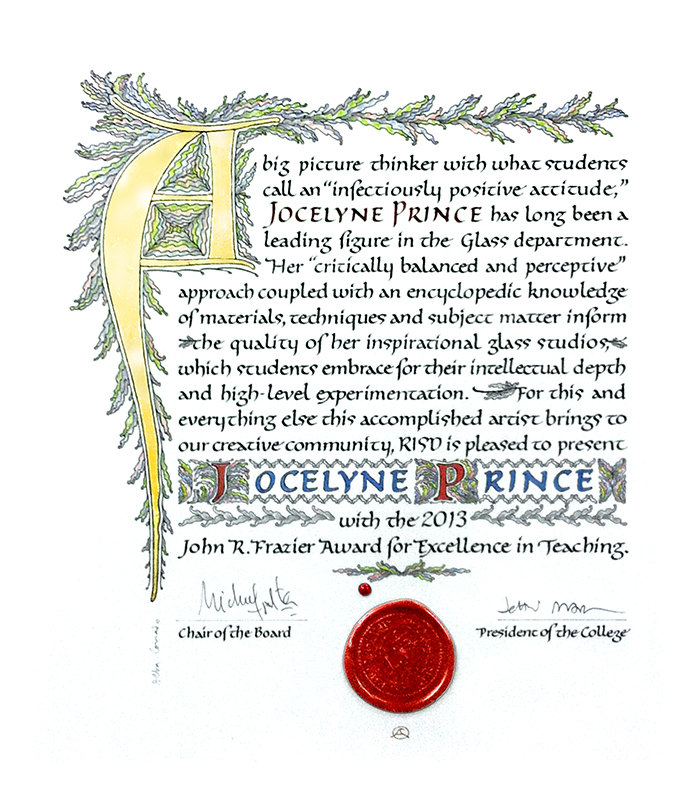 A big picture thinker with what students
call an "infectiously positive attitude,"
JOCELYNE PRINCE has long been a
leading figure in the Glass department.
Her "critically balanced and perceptive"
approach coupled with an encyclopedic knowledge
of materials, techniques and subject matter inform
the quality of her inspirational glass studios,
which students embrace for their intellectual depth
and high-level experimentation. For this and
everything else this accomplished artist brings to
our creative community, RISD is pleased to present
JOCELYNE PRINCE
with the 2013
John R. Frazier Award for Excellence in Teaching.
Chair of the Board
President of the College